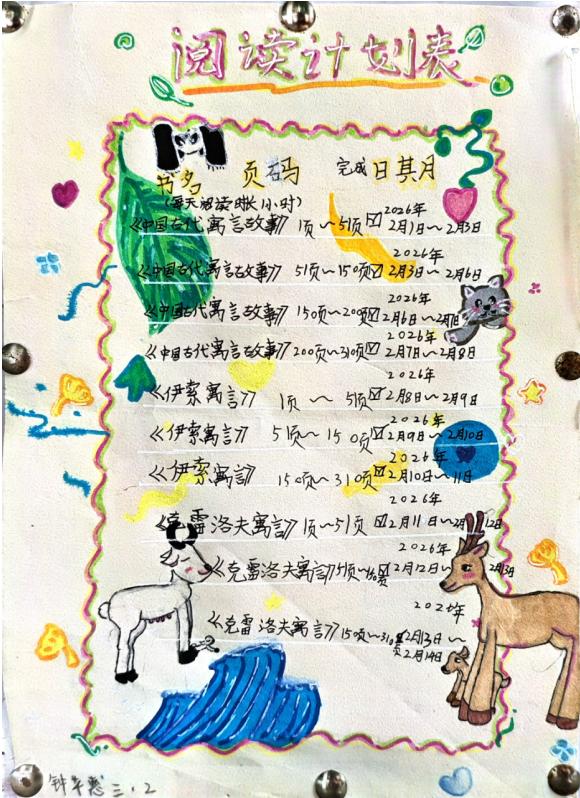 阅读计划表
书名 页码 完成日期月
(每天阅读时长1小时)
2026年
《中国古代寓言故事》 1页~51页☑ 2月1日~2月3日
2026年
《中国古代寓言故事》 51页~150页☑ 2月3日~2月6日
2026年
《中国古代寓言故事》 150页~200页☑ 2月6日~2月7日
2026年
《中国古代寓言故事》 200页~310页☑ 2月7日~2月8日
2026年
《伊索寓言》 1页~51页☑ 2月8日~2月9日
2026年
《伊索寓言》 51页~150页☑ 2月9日~2月10日
2026年
《伊索寓言》 150页~310页☑ 2月10日~11日
2026年
《克雷洛夫寓言》 1页~51页☑ 2月11日~2月12日
2026年
《克雷洛夫寓言》 ☑ 2月12日~2月13日
2026年
《克雷洛夫寓言》 150页~310页☑ 2月13日~
2月14日
三.2